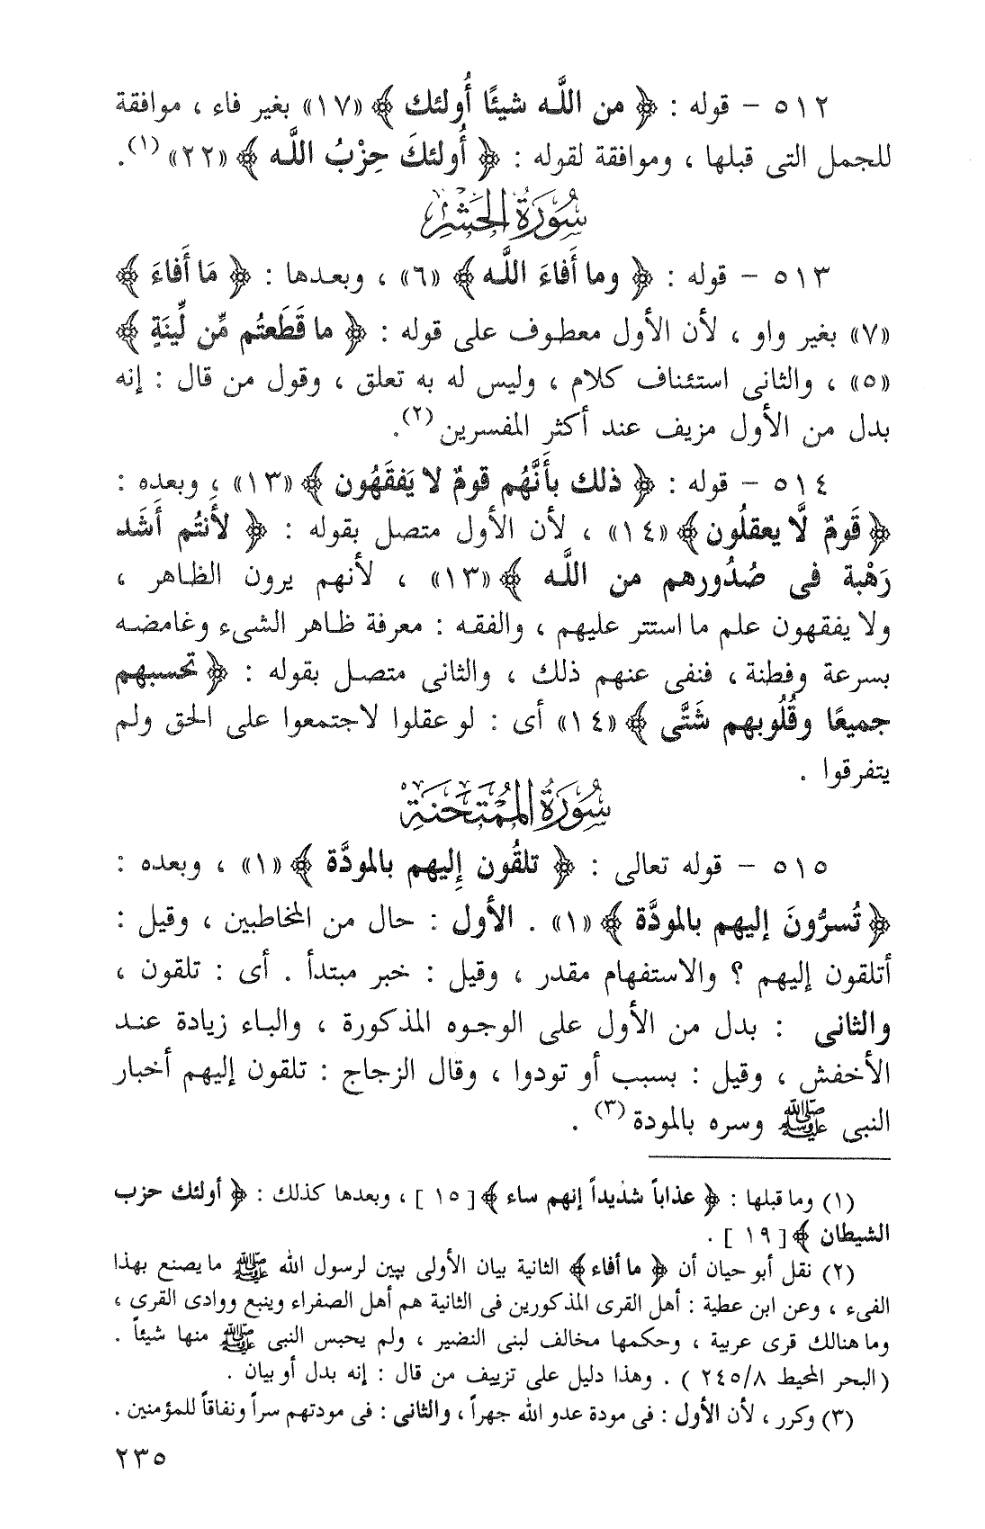 ٥١٢ – قوله : ﴿ من اللَّـه شيئًا أُولئك ﴾ «١٧» بغير فاء ، موافقة
للجمل التى قبلها ، وموافقة لقوله : ﴿ أُولئكَ حِزْبُ اللَّـه ﴾ «٢٢» (١).
سُورَةُ الحَشْرِ
٥١٣ – قوله : ﴿ وما أَفاءَ اللَّـه ﴾ «٦» ، وبعـدها : ﴿ مَا أَفاءَ ﴾
«٧» بغير واو ، لأن الأول معطـوف على قوله : ﴿ ما قَطَعتُم مِّن لِّينَةٍ ﴾
«٥» ، والثانى استئناف كلام ، وليس له به تعلق ، وقول من قال : إنه
بدل من الأول مزيف عند أكثر المفسرين (٢).
٥١٤ – قوله : ﴿ ذلك بأَنَّهُم قومٌ لا يَفقَهُون ﴾ «١٣» ، وبعده :
﴿ قَومٌ لَّا يعقلُون ﴾ «١٤» ، لأن الأول متصل بقوله : ﴿ لأَنتُم أَشَد
رَهْبة فى صُدُورهم من اللَّـه ﴾ «١٣» ، لأنهم يرون الظـاهر ،
ولا يفقهون علم ما استتر عليهم ، والفقـه : معرفة ظـاهر الشىء وغامضـه
بسرعة وفطنة ، فنفى عنهم ذلك ، والثانى متصـل بقوله : ﴿ تحسبهم
جميعًا وقُلُوبهم شَتَّى ﴾ «١٤» أى : لو عقلوا لاجتمعوا على الحق ولم
يتفرقوا .
سُورَةُ المُمْتَحَنَةِ
٥١٥ – قوله تعالى : ﴿ تلقُون إِليهم بالمودَّة ﴾ «١» ، وبعده :
﴿ تُسرُّونَ إليهم بالمودَّة ﴾ «١» . الأول : حال من المخاطبين ، وقيل :
أتلقون إليهم ؟ والاستفهام مقدر ، وقيل : خبر مبتدأ . أى : تلقون ،
والثانى : بدل من الأول على الوجـوه المذكورة ، والبـاء زيادة عنـد
الأخفش ، وقيل : بسبب أو تودوا ، وقال الزجاج : تلقون إليهم أخبار
النبى ﷺ وسره بالمودة (٣) .
(١) وما قبلها : ﴿ عذاباً شديداً إنهم ساء ﴾ [ ١٥ ] ، وبعدها كذلك : ﴿ أولئك حزب
الشيطان ﴾ [ ١٩ ] .
(٢) نقل أبو حيان أن ﴿ ما أفاء ﴾ الثانية بيان الأولى يبين لرسول الله ﷺ ما يصنع بهذا
الفىء ، وعن ابن عطية : أهل القرى المذكورين فى الثانية هم أهل الصفراء وينبع ووادى القرى ،
وما هنالك قرى عربية ، وحكمها مخالف لبنى النضير ، ولم يحبس النبى ﷺ منها شيئاً .
( البحر المحيط ٢٤٥/٨ ) . وهذا دليل على تزييف من قال : إنه بدل أو بيان .
(٣) وكرر ، لأن الأول : فى مودة عدو الله جهراً ، والثانى : فى مودتهم سراً ونفاقاً للمؤمنين .
٢٣٥